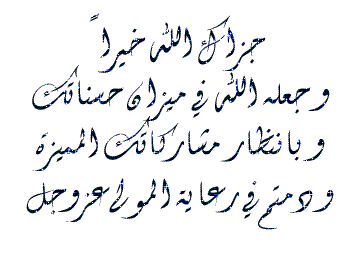 جزاك الله خيراً
وجعله الله في ميزان حسناتك
وبانتظار مشاركاتك المميزة
ودمتم في رعاية المولى عزوجل